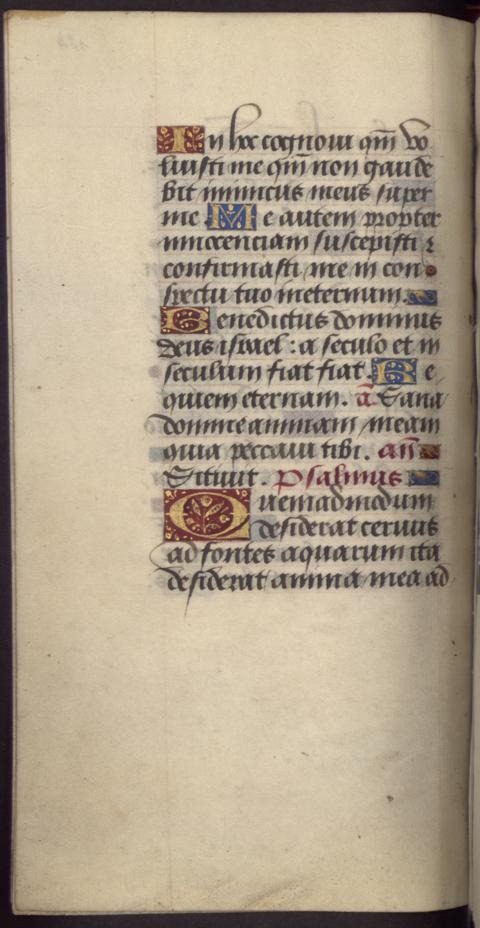 In hoc cognovi qm̄ vo
luisti me qm̄ non gaude
bit inimicus meus super
me Me autem propter
innocenciam suscepisti ⁊
confirmasti me in con
spectu tuo ineternum.
Benedictus dominus
deus israel : a seculo et in
seculum fiat fiat. Re
quiem eternam. a᷃ Sana
domine animam meam
quia peccavi tibi. an̄
Sitivit. Psalmus
Quemadmodum
desiderat cervus
ad fontes aquarum ita
desiderat anima mea ad